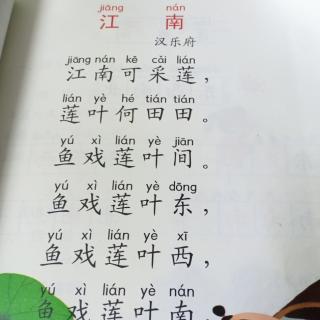 jiāng nán
江 南
汉乐府
jiāng nán kě cǎi lián
江南可采莲，
lián yè hé tián tián
莲叶何田田。
yú xì lián yè jiān
鱼戏莲叶间。
yú xì lián yè dōng
鱼戏莲叶东，
yú xì lián yè xī
鱼戏莲叶西，
yú xì lián yè nán
鱼戏莲叶南，